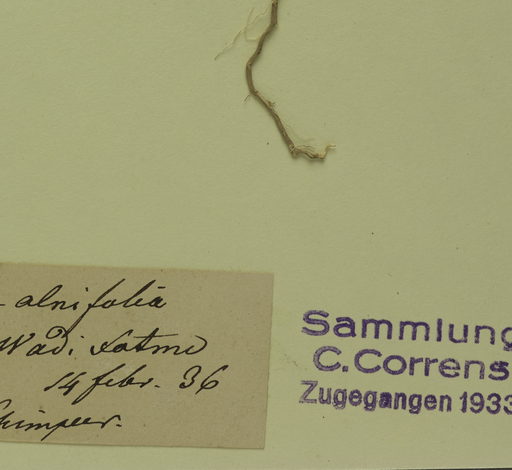 alnifolia
Wadi Fatme
14 febr. 36
Schimper.
Sammlung
C. Correns
Zugegangen 1933